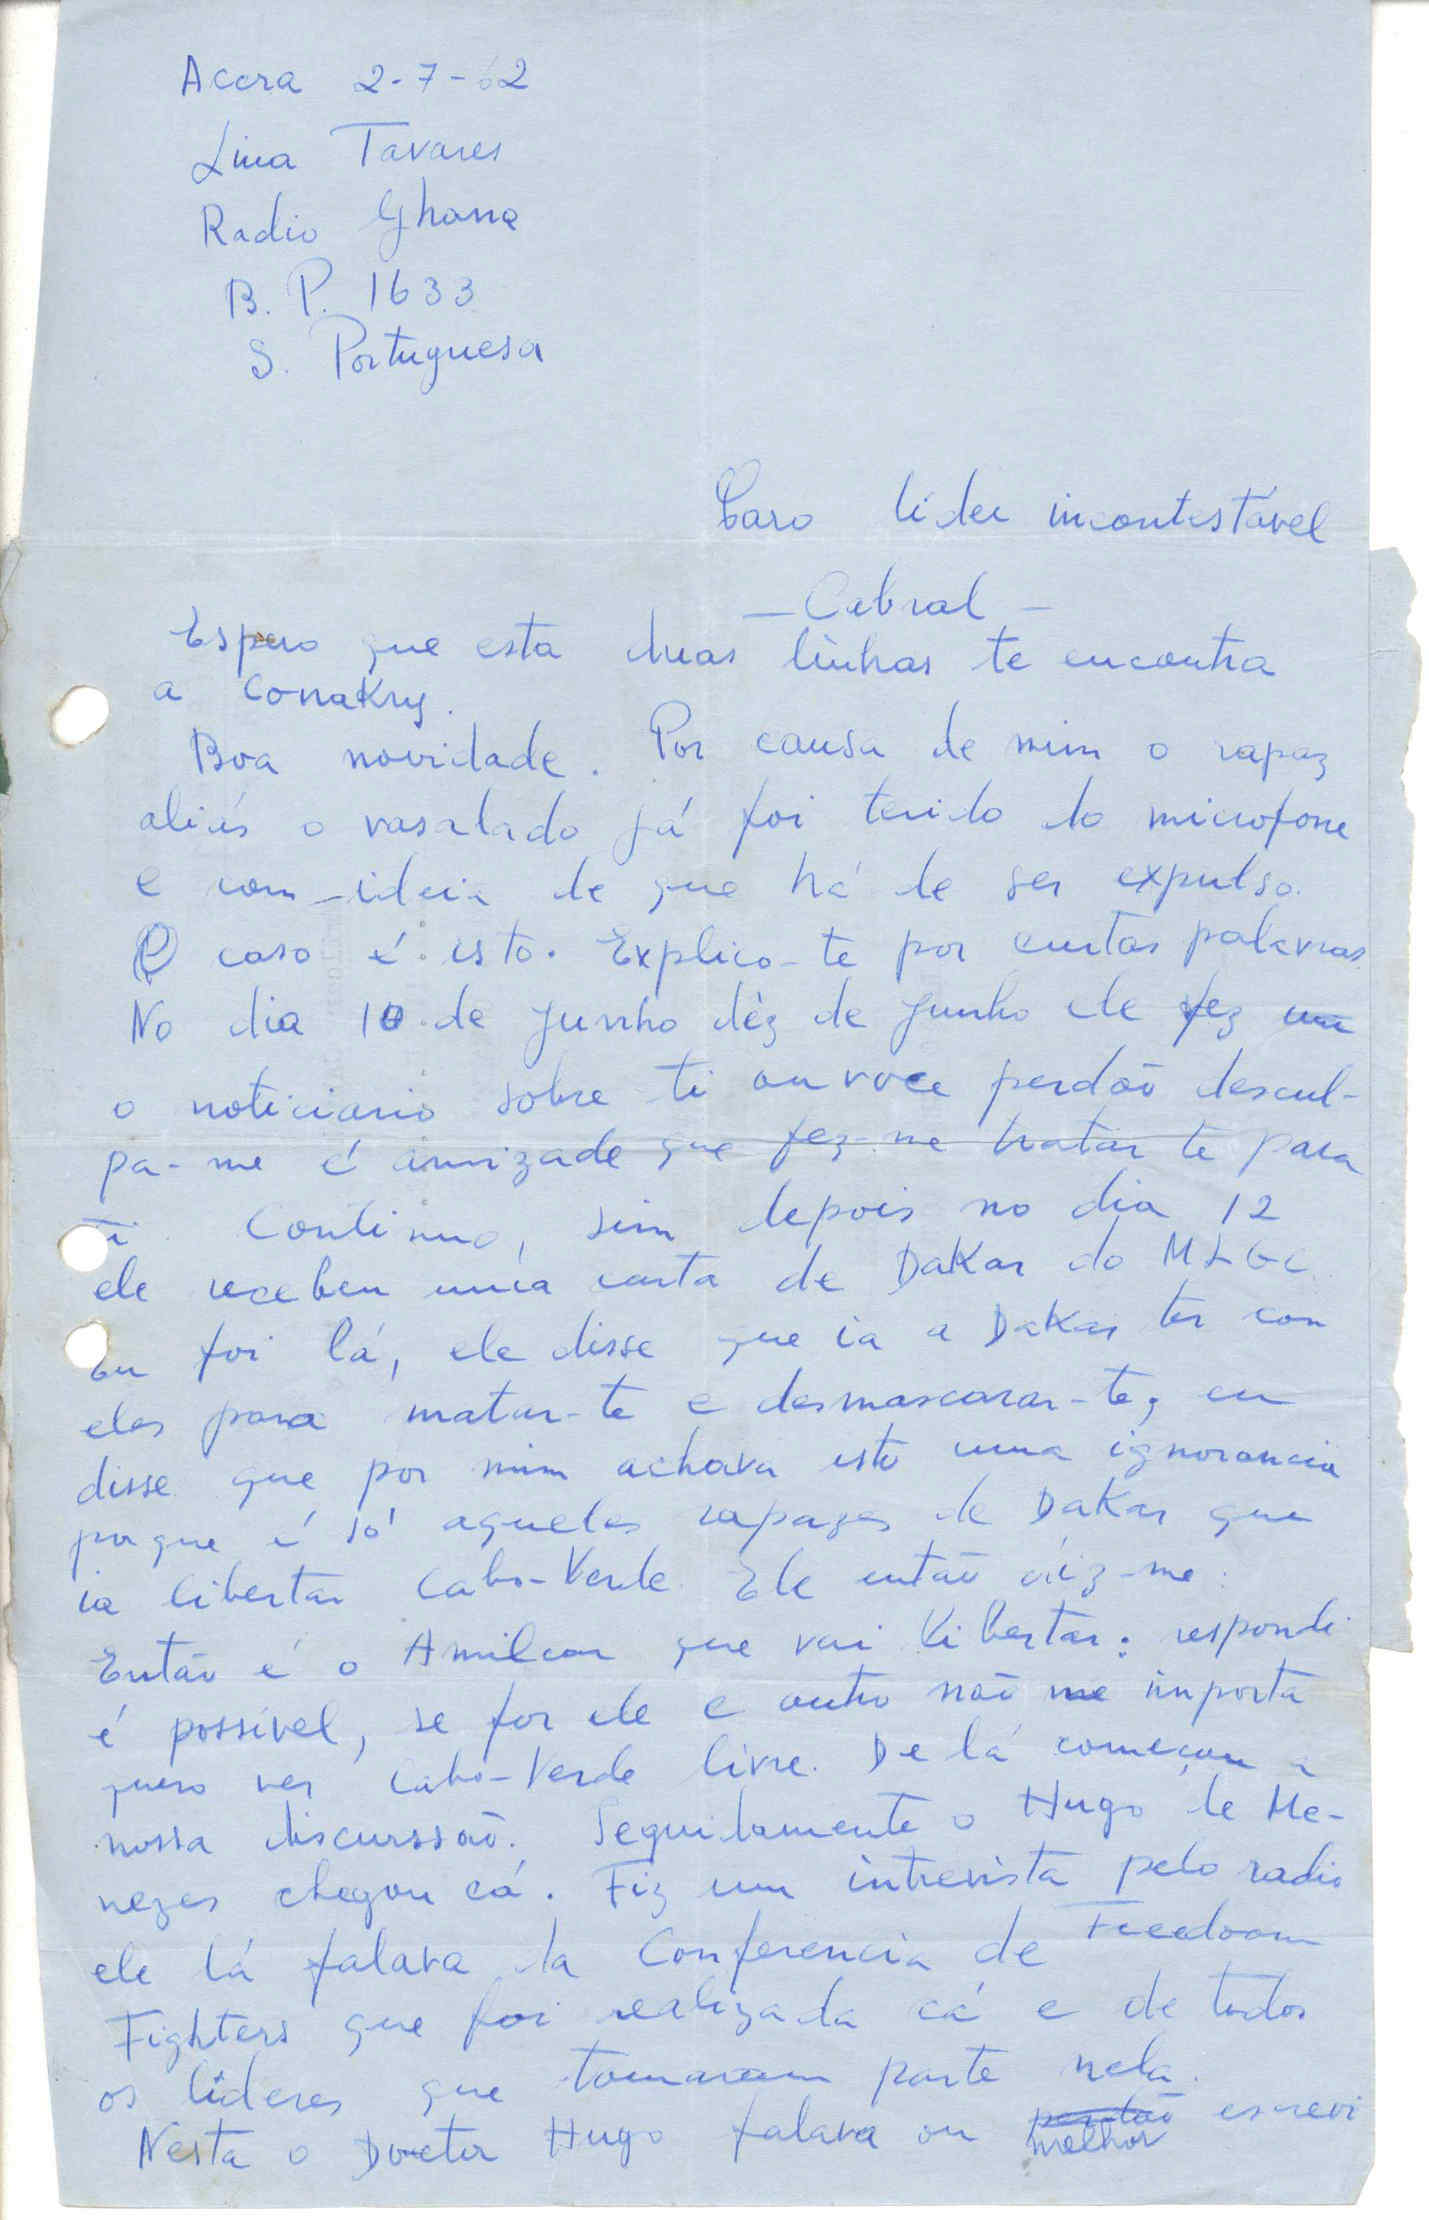 Accra 2-7-62
Lina Tavares
Radio Ghana
B. P. 1633
S. Portuguesa
Caro lider incontestável
— Cabral —
Espero que esta duas linhas te encontra
a Conakry.
Boa novidade. Por causa de mim o rapaz
aliás o vasalado já foi tirido do microfone
e com ideia de que há de ser expulso.
O caso é isto. Explico-te por curtas palavras
No dia 10 de Junho déz de Junho ele fez um
o noticiario sobre ti ou voce perdoã descul-
pa-me é amizade que fez-me tratar te para
ti. Continuo, sim depois no dia 12
ele recebeu uma carta de Dakar do MLGC
Eu foi lá, ele disse que ia a Dakar ter con
eles para matar-te e desmascarar-te, eu
disse que por mim achava isto uma ignorancia
porque é só aqueles rapazes de Dakar que
ia libertar Cabo-Verde. Ele então diz-me:
Então é o Amilcar que vai libertar: respondi
é possível, se for ele e outro não me importa
quero ver Cabo-Verde livre. De lá começou a
nossa discurssão. Seguidamente o Hugo de Me-
nezes chegou cá. Fiz um intrevista pelo radio
ele lá falava da Conferencia de Freedoom
Fighters que foi realizada cá e de todos
os líderes que tomaram parte nela.
Nesta o Docter Hugo falava ou perdão melhor escrevi